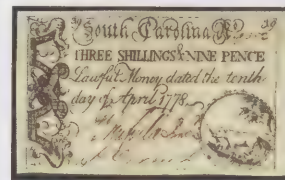 South Carolina
THREE SHILLINGS & NINE PENCE
Lawful Money dated the tenth
day of April 1778